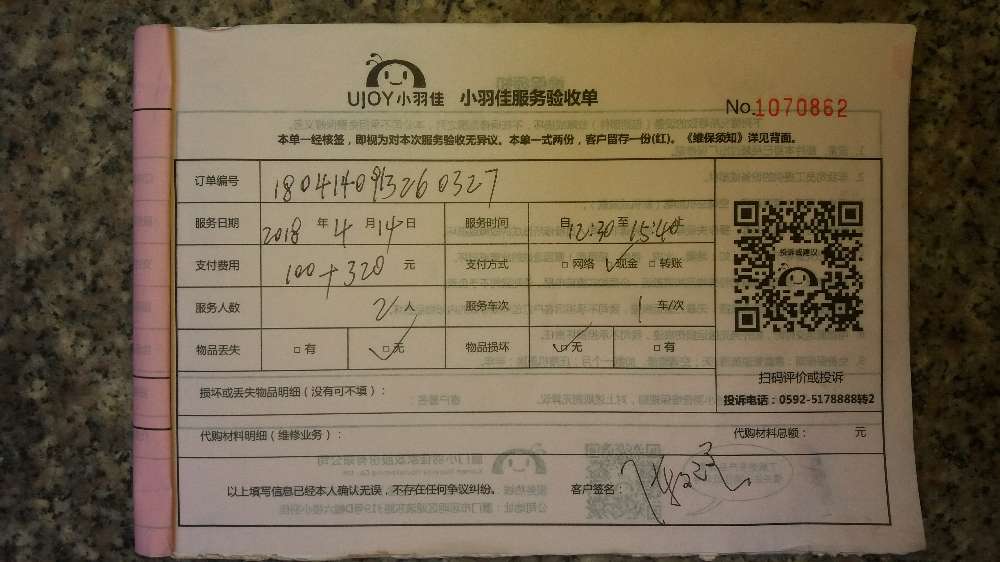 UJOY小羽佳 小羽佳服务验收单
No.1070862
本单一经核签，即视为对本次服务验收无异议。本单一式两份，客户留存一份(红)。《维保须知》详见背面。
订单编号 1804140913260327
服务日期 2018 年 4 月 14 日 服务时间 自 12:30 至 15:40 止
支付费用 100+320 元 支付方式 □ 网络 ☑ 现金 □ 转账
服务人数 2 人 服务车次 1 车/次
物品丢失 □ 有 ☑ 无 物品损坏 ☑ 无 □ 有
投诉或建议
扫码评价或投诉
投诉电话：0592-5178888转2
损坏或丢失物品明细（没有可不填）：
代购材料明细（维修业务）： 代购材料总额： 元
以上填写信息已经本人确认无误，不存在任何争议纠纷。 客户签名：